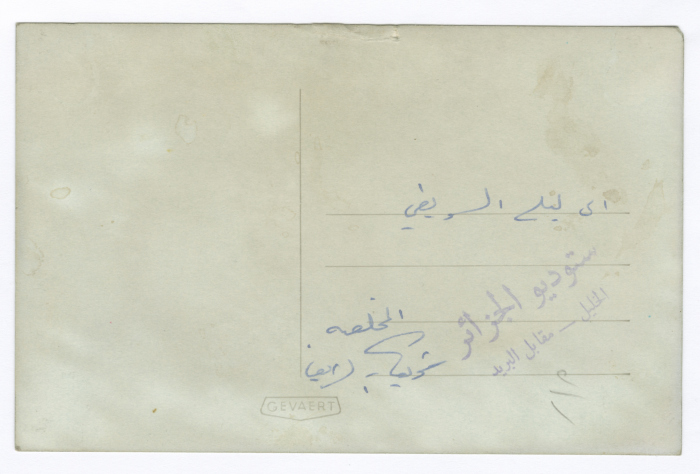 الى ليلى السويطي
ستوديو الجزائر
الخليل — مقابل البريد
المخلصه
GEVAERT